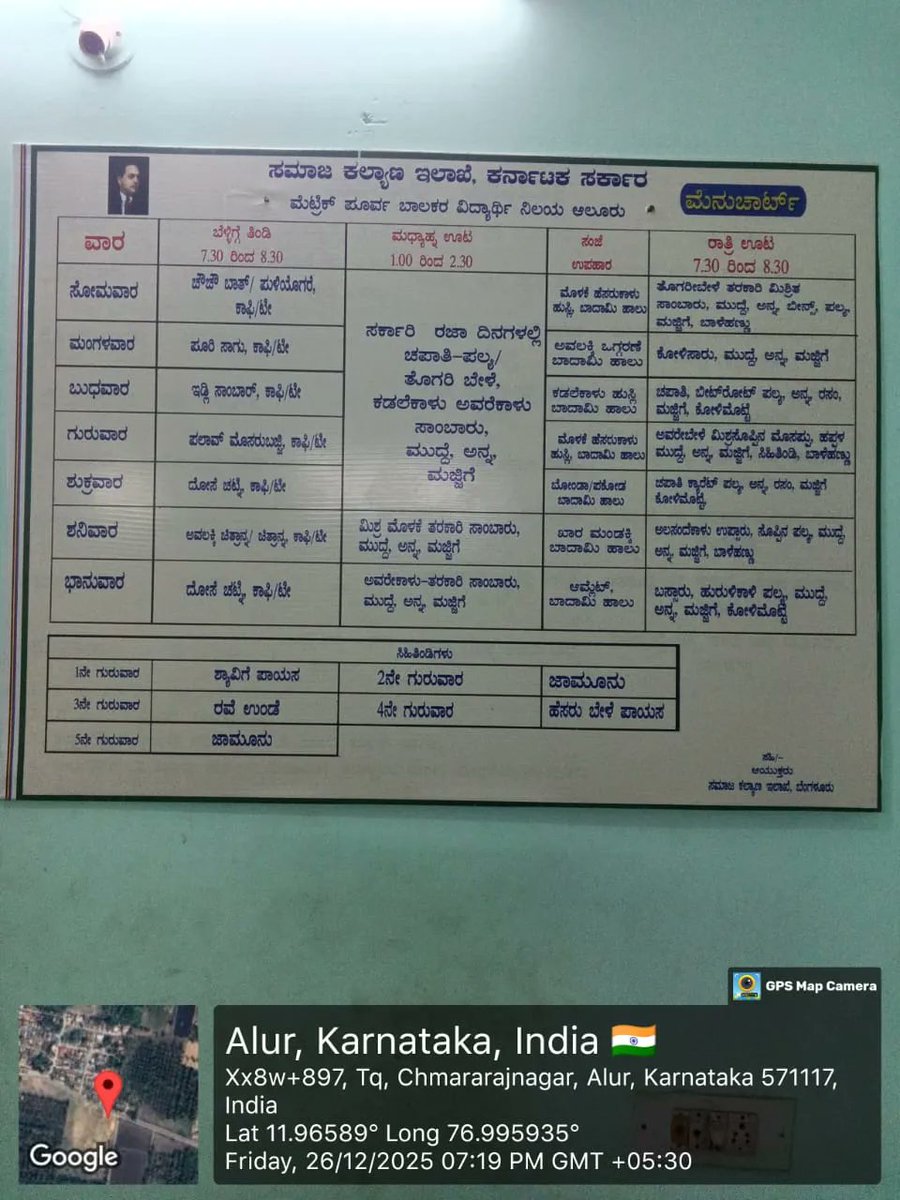 ಸಮಾಜ ಕಲ್ಯಾಣ ಇಲಾಖೆ, ಕರ್ನಾಟಕ ಸರ್ಕಾರ
ಮೆಟ್ರಿಕ್ ಪೂರ್ವ ಬಾಲಕರ ವಿದ್ಯಾರ್ಥಿ ನಿಲಯ ಆಲೂರು
ಮೆನುಚಾರ್ಟ್
ವಾರ
ಬೆಳ್ಳಿಗ್ಗೆ ತಿಂಡಿ
7.30 ರಿಂದ 8.30
ಮಧ್ಯಾಹ್ನ ಊಟ
1.00 ರಿಂದ 2.30
ಸಂಜೆ
ಉಪಹಾರ
ರಾತ್ರಿ ಊಟ
7.30 ರಿಂದ 8.30
ಸೋಮವಾರ
ಚೌಚೌ ಬಾತ್/ ಪುಳಿಯೋಗರೆ,
ಕಾಫಿ/ಟೀ
ಸರ್ಕಾರಿ ರಜಾ ದಿನಗಳಲ್ಲಿ
ಚಪಾತಿ-ಪಲ್ಯ/
ತೊಗರಿ ಬೇಳೆ,
ಕಡಲೆಕಾಳು ಅವರೆಕಾಳು
ಸಾಂಬಾರು,
ಮುದ್ದೆ, ಅನ್ನ,
ಮಜ್ಜಿಗೆ
ಮೊಳಕೆ ಹೆಸರುಕಾಳು
ಹುಸ್ಲಿ, ಬಾದಾಮಿ ಹಾಲು
ತೊಗರೀಬೇಳೆ ತರಕಾರಿ ಮಿಶ್ರಿತ
ಸಾಂಬಾರು, ಮುದ್ದೆ, ಅನ್ನ, ಬೀನ್ಸ್, ಪಲ್ಯ,
ಮಜ್ಜಿಗೆ, ಬಾಳೆಹಣ್ಣು
ಮಂಗಳವಾರ
ಪೂರಿ ಸಾಗು, ಕಾಫಿ/ಟೀ
ಅವಲಕ್ಕಿ ಒಗ್ಗರಣೆ
ಬಾದಾಮಿ ಹಾಲು
ಕೋಳಿಸಾರು, ಮುದ್ದೆ, ಅನ್ನ, ಮಜ್ಜಿಗೆ
ಬುಧವಾರ
ಇಡ್ಲಿ ಸಾಂಬಾರ್, ಕಾಫಿ/ಟೀ
ಕಡಲೆಕಾಳು ಹುಸ್ಲಿ
ಬಾದಾಮಿ ಹಾಲು
ಚಪಾತಿ, ಬೀಟ್‌ರೋಟ್ ಪಲ್ಯ, ಅನ್ನ, ರಸಂ,
ಮಜ್ಜಿಗೆ, ಕೋಳಿಮೊಟ್ಟೆ
ಗುರುವಾರ
ಪಲಾವ್ ಮೊಸರುಬಜ್ಜಿ, ಕಾಫಿ/ಟೀ
ಮೊಳಕೆ ಹೆಸರುಕಾಳು
ಹುಸ್ಲಿ, ಬಾದಾಮಿ ಹಾಲು
ಅವರೇಬೇಳೆ ಮಿಶ್ರಸೊಪ್ಪಿನ ಮೊಸಪ್ಪು, ಹಪ್ಪಳ
ಮುದ್ದೆ, ಅನ್ನ, ಮಜ್ಜಿಗೆ, ಸಿಹಿತಿಂಡಿ, ಬಾಳೆಹಣ್ಣು
ಶುಕ್ರವಾರ
ದೋಸೆ ಚಟ್ನಿ, ಕಾಫಿ/ಟೀ
ಬೋಂಡಾ/ಪಕೋಡ
ಬಾದಾಮಿ ಹಾಲು
ಚಪಾತಿ ಕ್ಯಾರೆಟ್ ಪಲ್ಯ, ಅನ್ನ, ರಸಂ, ಮಜ್ಜಿಗೆ
ಕೋಳಿಮೊಟ್ಟೆ,
ಶನಿವಾರ
ಅವಲಕ್ಕಿ ಚಿತ್ರಾನ್ನ/ ಚಿತ್ರಾನ್ನ, ಕಾಫಿ/ಟೀ
ಮಿಶ್ರ ಮೊಳಕೆ ತರಕಾರಿ ಸಾಂಬಾರು,
ಮುದ್ದೆ, ಅನ್ನ, ಮಜ್ಜಿಗೆ
ಖಾರ ಮಂಡಕ್ಕಿ
ಬಾದಾಮಿ ಹಾಲು
ಅಲಸಂದೆಕಾಳು ಉಪ್ಸಾರು, ಸೊಪ್ಪಿನ ಪಲ್ಯ, ಮುದ್ದೆ,
ಅನ್ನ, ಮಜ್ಜಿಗೆ, ಬಾಳೆಹಣ್ಣು
ಭಾನುವಾರ
ದೋಸೆ ಚಟ್ನಿ, ಕಾಫಿ/ಟೀ
ಅವರೇಕಾಳು-ತರಕಾರಿ ಸಾಂಬಾರು,
ಮುದ್ದೆ, ಅನ್ನ, ಮಜ್ಜಿಗೆ
ಆಮ್ಲೆಟ್,
ಬಾದಾಮಿ ಹಾಲು
ಬಸ್ಸಾರು, ಹುರುಳಿಕಾಳಿ ಪಲ್ಯ, ಮುದ್ದೆ,
ಅನ್ನ, ಮಜ್ಜಿಗೆ, ಕೋಳಿಮೊಟ್ಟೆ
ಸಿಹಿತಿಂಡಿಗಳು
1ನೇ ಗುರುವಾರ
ಶ್ಯಾವಿಗೆ ಪಾಯಸ
2ನೇ ಗುರುವಾರ
ಜಾಮೂನು
3ನೇ ಗುರುವಾರ
ರವೆ ಉಂಡೆ
4ನೇ ಗುರುವಾರ
ಹೆಸರು ಬೇಳೆ ಪಾಯಸ
5ನೇ ಗುರುವಾರ
ಜಾಮೂನು
ಸಹಿ/-
ಆಯುಕ್ತರು
ಸಮಾಜ ಕಲ್ಯಾಣ ಇಲಾಖೆ, ಬೆಂಗಳೂರು
GPS Map Camera
Alur, Karnataka, India
Xx8w+897, Tq, Chmararajnagar, Alur, Karnataka 571117,
India
Lat 11.96589° Long 76.995935°
Friday, 26/12/2025 07:19 PM GMT +05:30
Google